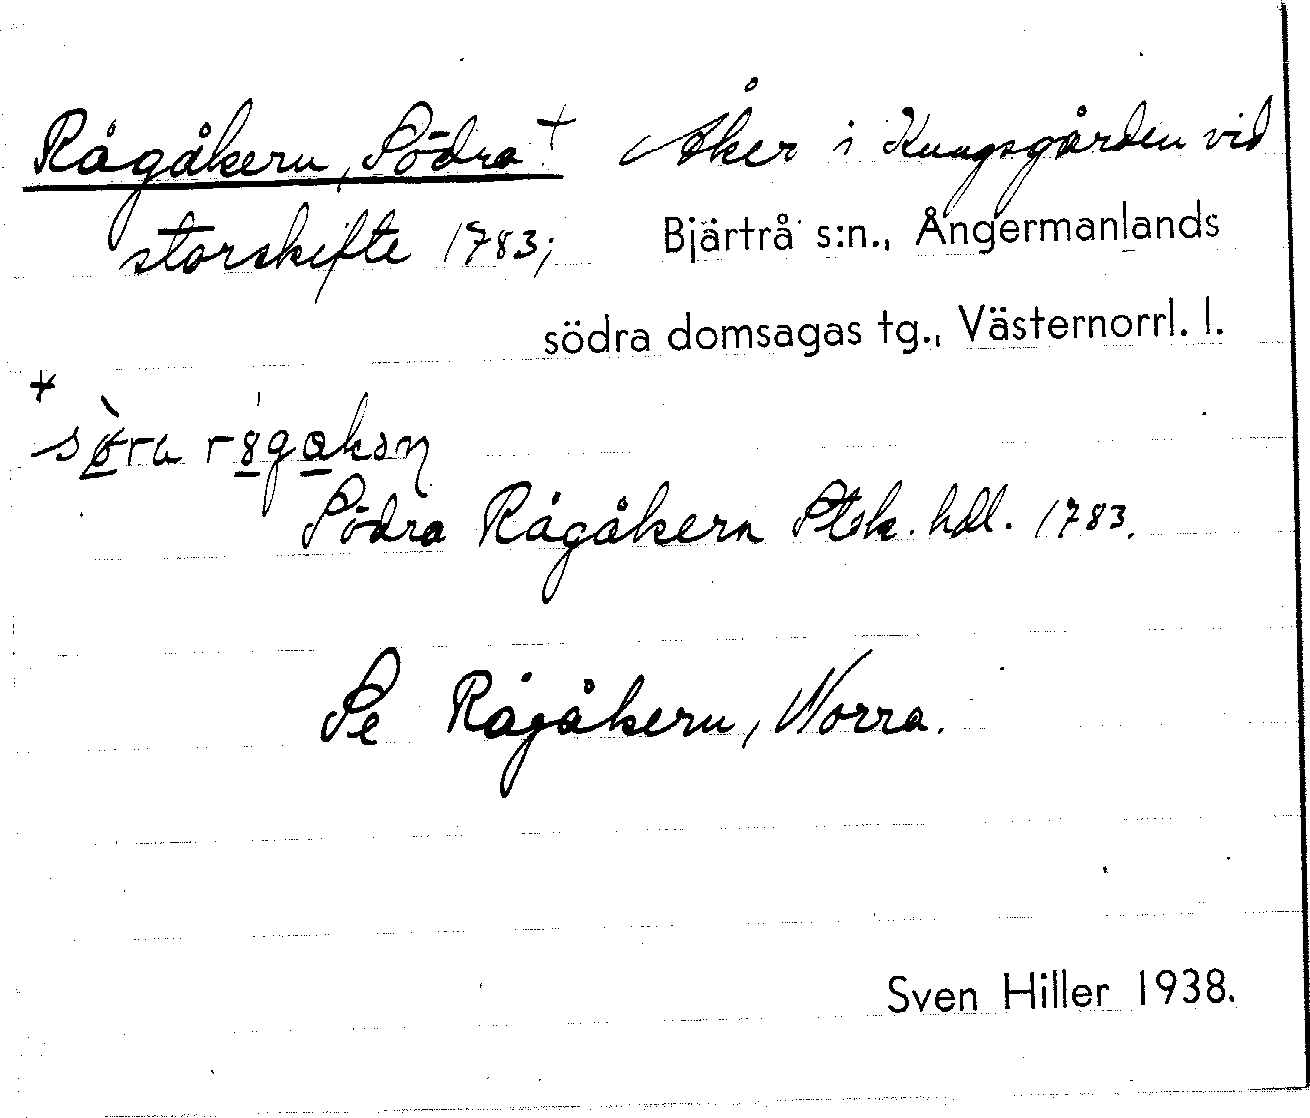 Rågåkern, Södra + Åker i Kungsgården vid
storskifte 1783; Bjärtrå s:n., Ångermanlands
södra domsagas tg., Västernorrl. l.
+
Södra Rågåkern Stsk. hdl. 1783.
Se Rågåkern, Norra.
Sven Hiller 1938.